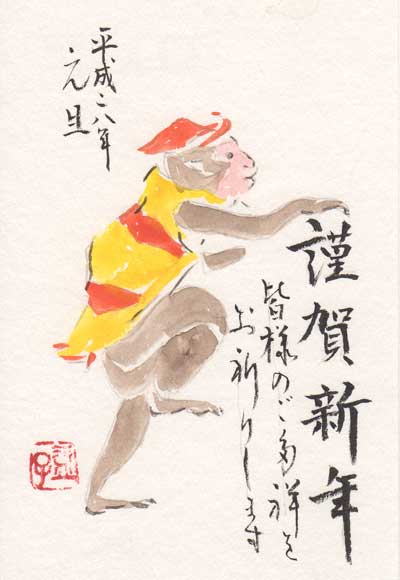 謹賀新年
皆様のご多祥を
お祈りします
平成二八年
元旦